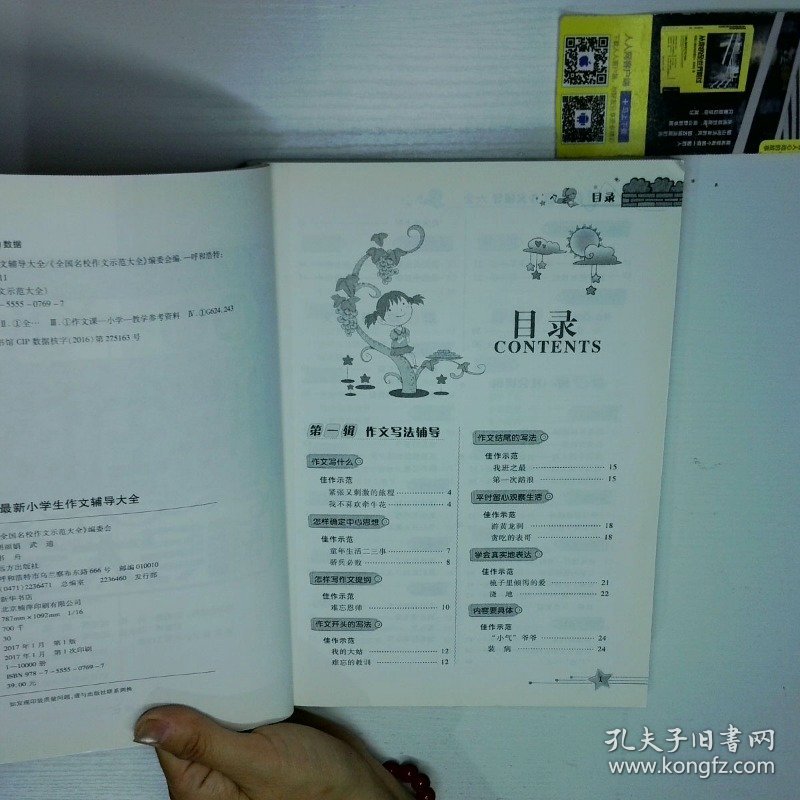 数据
文辅导大全/《全国名校作文示范大全》编委会编.—呼和浩特:
文示范大全)
-5555-0769-7
Ⅱ.①全… Ⅲ.①作文课—小学—教学参考资料 Ⅳ.①G624.243
书馆CIP数据核字(2016)第275163号
最新小学生作文辅导大全
全国名校作文示范大全》编委会
远方出版社
呼和浩特市乌兰察布东路666号 邮编010010
(0471)2236471 总编室 2236460 发行部
新华书店
787mm×1092mm 1/16
700千
30
2017年1月 第1版
2017年1月 第1次印刷
1—10000册
ISBN 978-7-5555-0769-7
39.00元
如发现印装质量问题,请与出版社联系调换
目录
目录
CONTENTS
第一辑 作文写法辅导
作文写什么
佳作示范
紧张又刺激的旅程 4
我不喜欢牵牛花 4
怎样确定中心思想
佳作示范
童年生活二三事 7
骄兵必败 8
怎样写作文提纲
佳作示范
难忘恩师 10
作文开头的写法
佳作示范
我的大姑 12
难忘的教训 12
作文结尾的写法
佳作示范
我班之最 15
第一次踏浪 15
平时留心观察生活
佳作示范
游黄龙洞 18
贪吃的表哥 18
学会真实地表达
佳作示范
桃子里倾泻的爱 21
浇地 22
内容要具体
佳作示范
“小气”爷爷 24
装病 24
1
孔夫子旧书网
www.kongfz.com